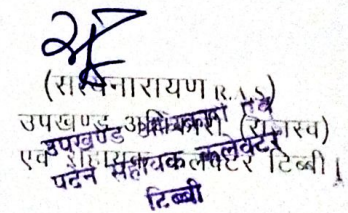 (सत्यनारायण R.A.S)
उपखण्ड अधिकारी (राजस्व)
एवं सहायक कलेक्टर टिब्बी।
उपखण्ड अधिकारी एवं
पदेन सहायक कलेक्टर
टिब्बी